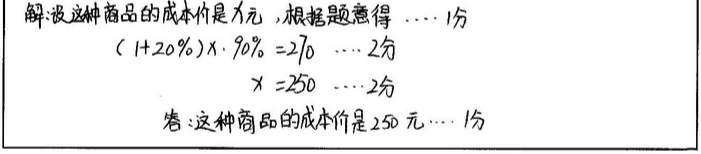 解:设这种商品的成本价是x元,根据题意得 ····1分
(1+20%)x·90%=270 ····2分
x=250 ····2分
答:这种商品的成本价是250元····1分